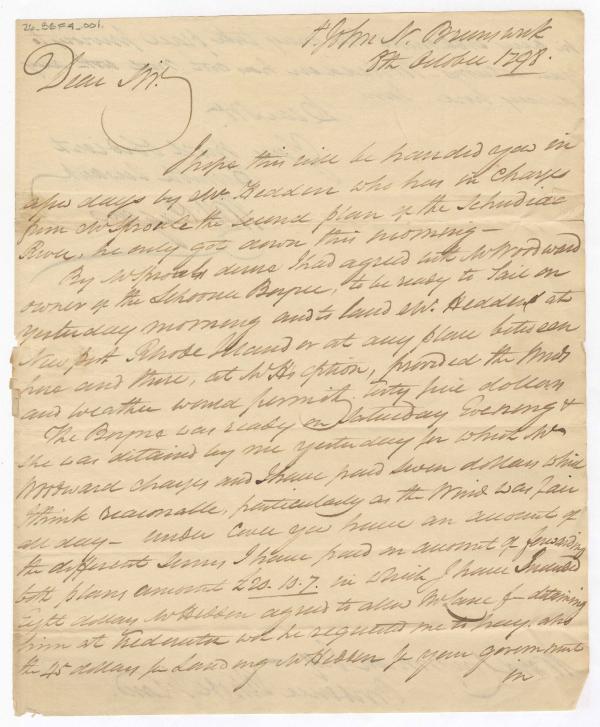 26-BEF4-001.
St John N. Brunswick
8th October 1798.
Dear Sir.
I hope this will be handed you in
a few days by Mr. Hebden who has in Charge
from Mr Sproule the second plan of the Schudiac
River, he only got down this morning –
By Mr Sprouls desire I had agreed with Mr Woodward
owner of the Schooner Boyne, to be ready to Sail on
yesterday morning and to land Mr. Hebden at
New port Rhode Island or at any place between
here and there, at Mr Hs option, provided the Winds
and weather would permit forty five dollars
The Boyne was ready on Saturday Evening &
she was detained by me yesterday for which Mr
Woodward charges and I have paid seven dollars which
I think reasonable, particularly as the Wind was fair
all day – under Cover you have an account of
the different sums I have paid on account of forwarding
both plans amount £20.10.7. in which I have Included
Eight dollars Mr Hebden agreed to allow for detaining
him at he requested me to pay, also
the 45 dollars for Landing Mr Hebben for your government
in